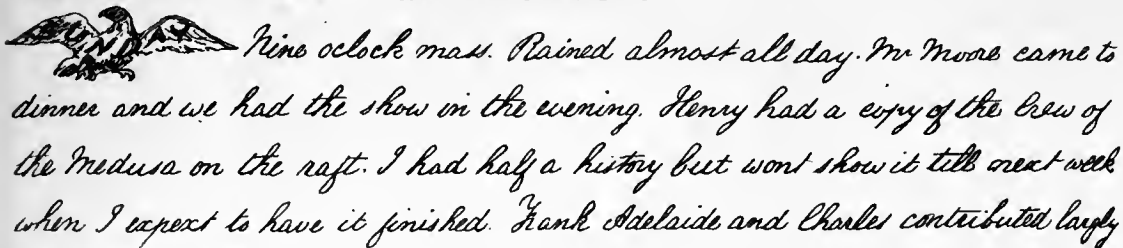 Nine oclock mass. Rained almost all day. Mr Moore came to
dinner and we had the show in the evening. Henry had a copy of the Crew of
the Medusa on the raft. I had half a history but wont show it till next week
when I expext to have it finished. Frank Adelaide and Charles contributed largly